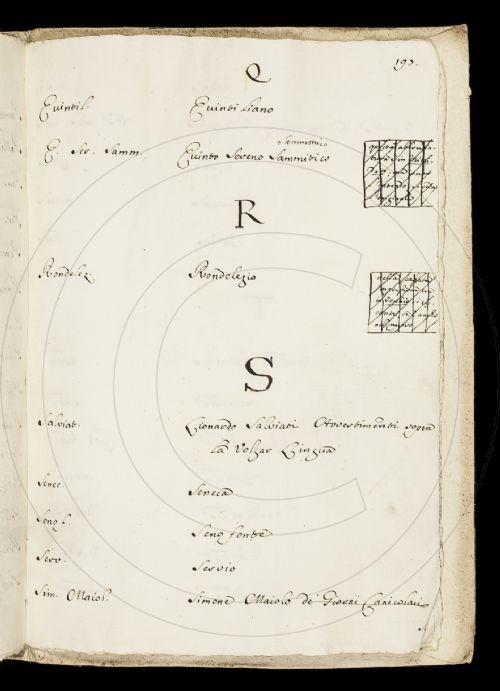 197.
Q
Quintil. Quintiliano
Q. Ser. Samm. Quinto Sereno Sammitico
Sammonico
R
Rondelez. Rondelezio
S
Salviat. Lionardo Salviati Avvertimenti sopra
la Volgar Lingua
Senec. Seneca
Senof. Senofonte
Serv. Servio
Sim. Maiol. Simone Maiolo de' Giorni Canicolari